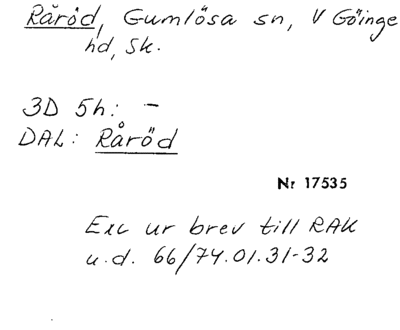 Råröd, Gumlösa sn, V Göinge
hd, Sk.
3D 5h: -
DAL: Råröd
Nr 17535
Exc ur brev till RAK
u.d. 66/74.01.31-32